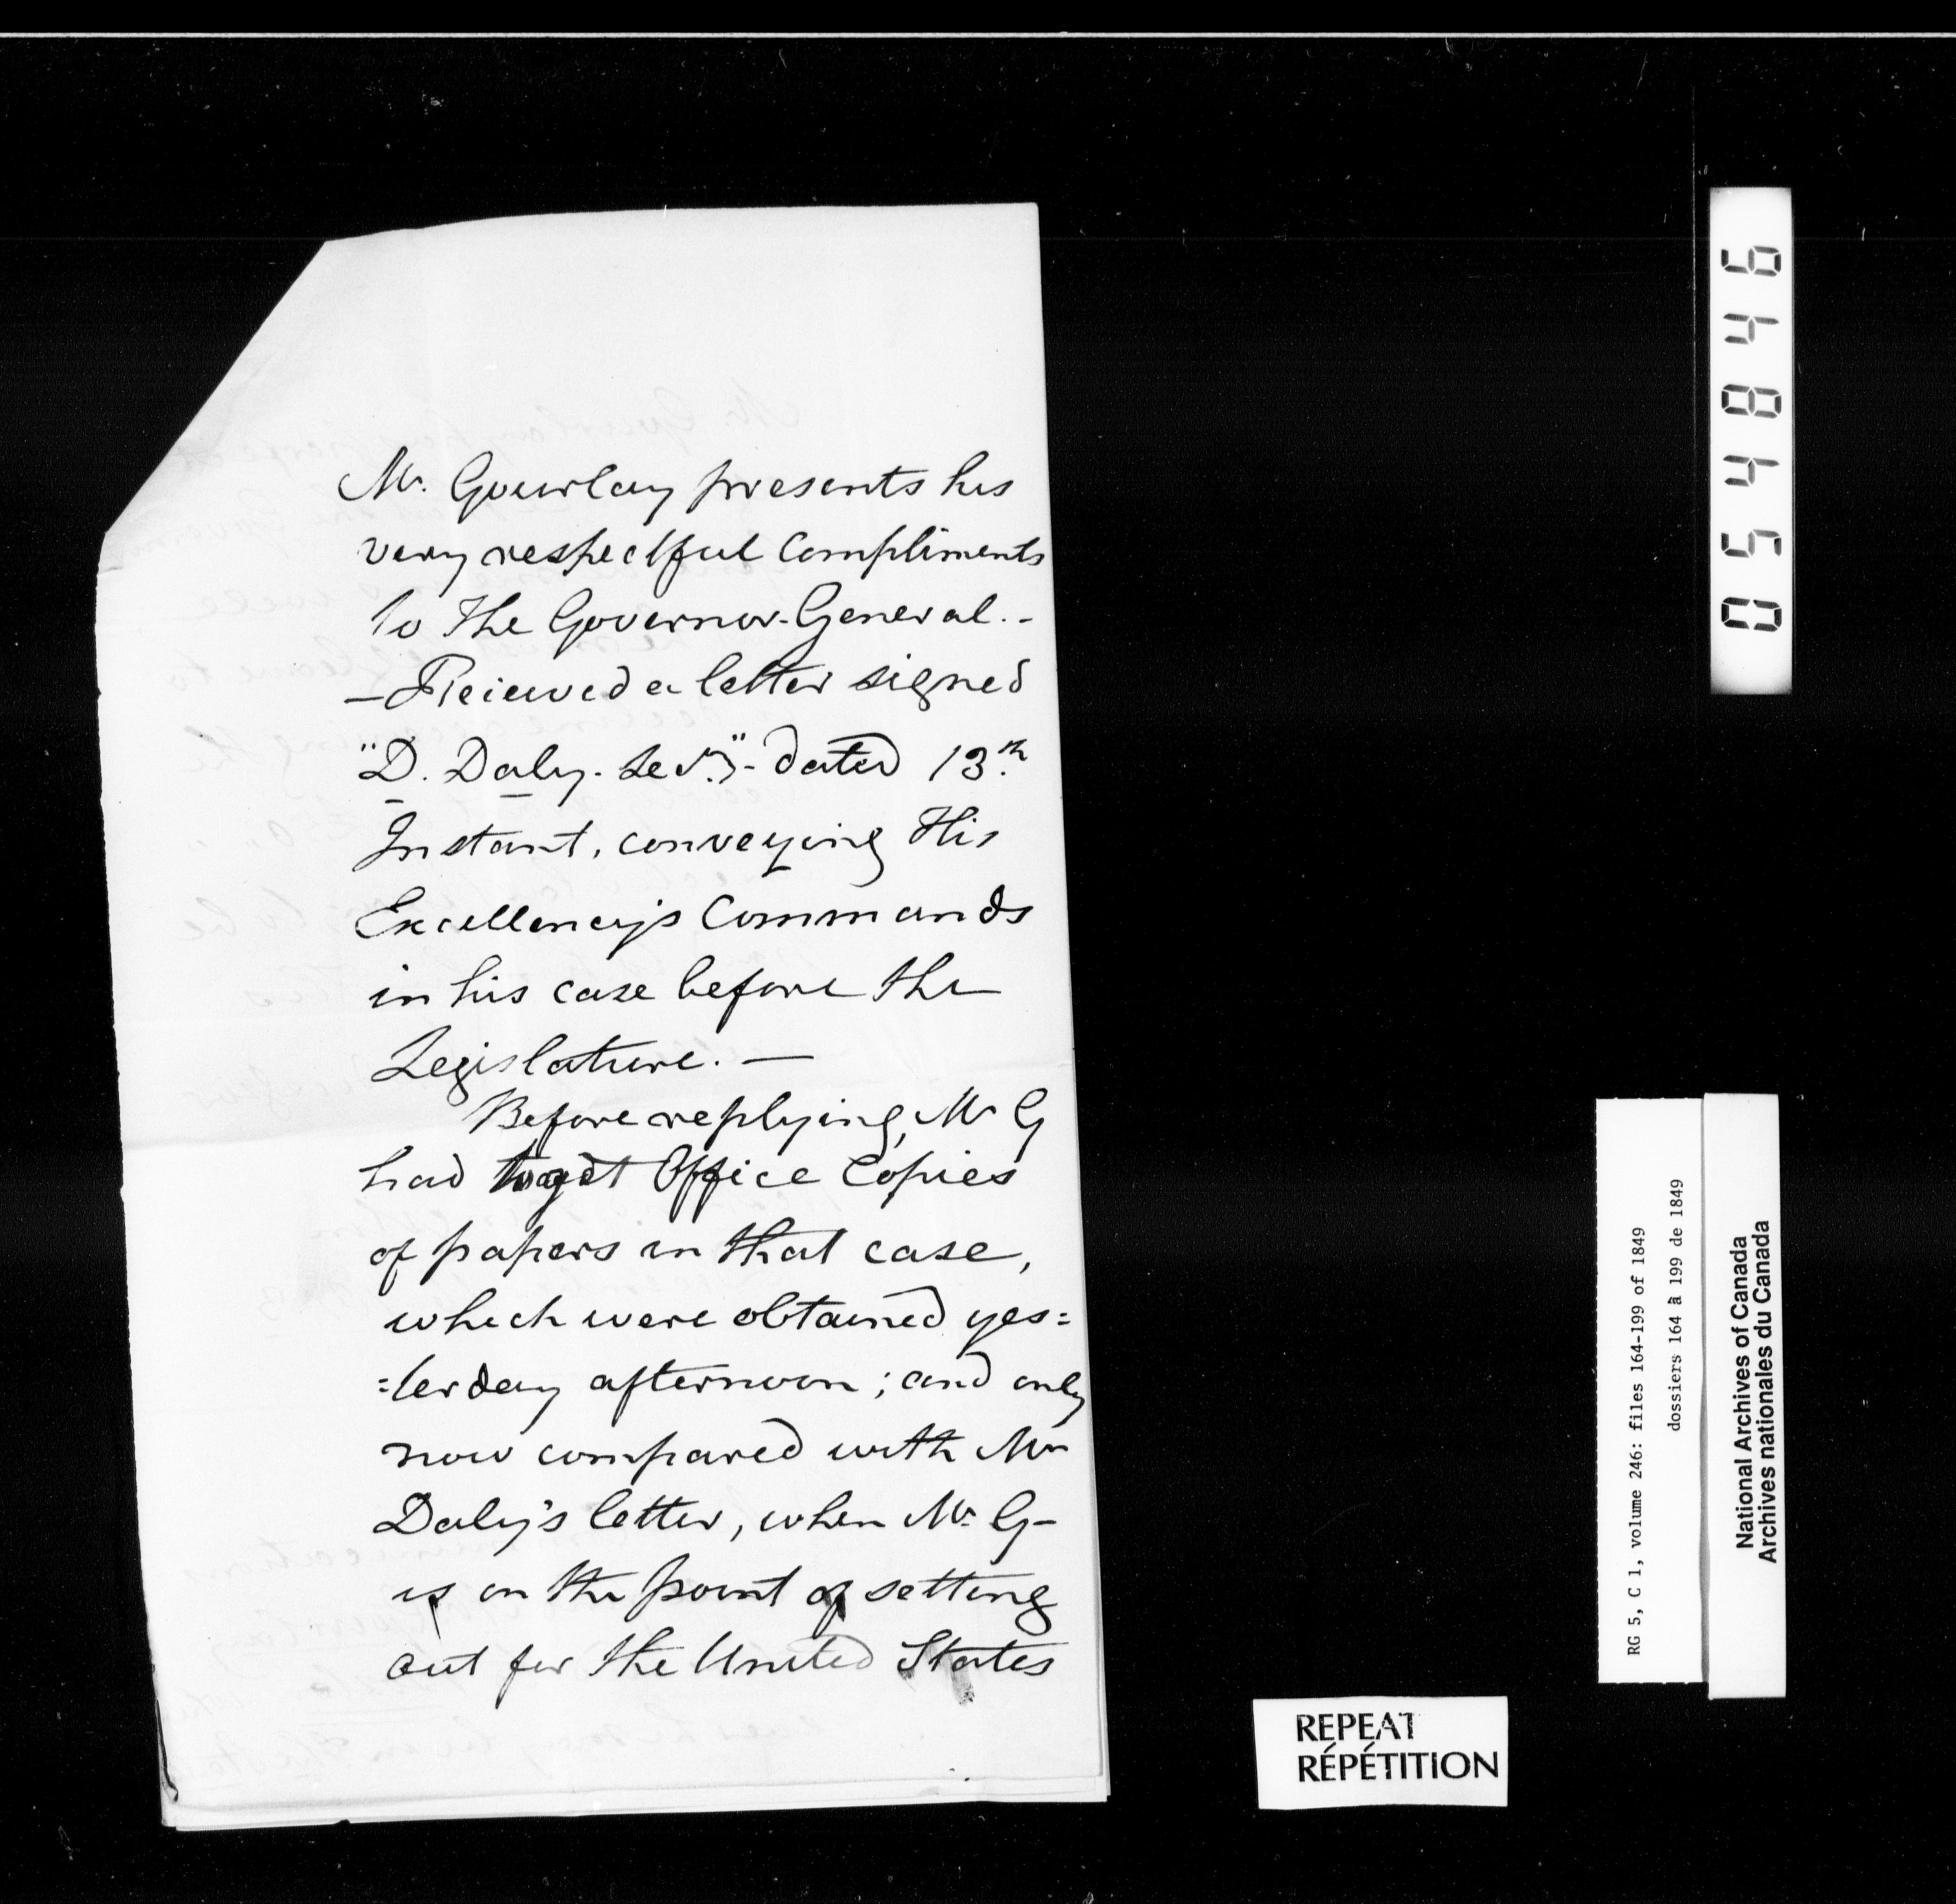 Mr. Gourlay presents his
very respectful Compliments
to The Governor-General.-
—Received a letter signed
"D. Daly. Secy."- dated 13th
Instant, conveying His
Excellency's Commands
in his case before the
Legislature. —
Before replying, Mr G
had to get Office Copies
of papers in that case,
which were obtained yes=
=terday afternoon; and only
now compared with Mr
Daly's letter, when Mr. G-
is on the point of setting
out for the United States
054846
RG 5, C 1, volume 246: files 164-199 of 1849
dossiers 164 à 199 de 1849
National Archives of Canada
Archives nationales du Canada
REPEAT
RÉPÉTITION